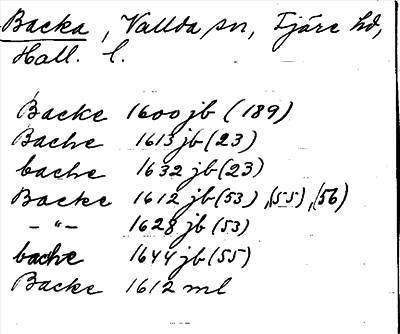 Backa, Vallda sn, Fjäre hd,
Hall. l.
Backe 1600 jb (189)
Bache 1613 jb (23)
bache 1632 jb (23)
Backe 1612 jb (53), (55), (56)
— " — 1628 jb (53)
bache 1644 jb (55)
Backe 1612 ml